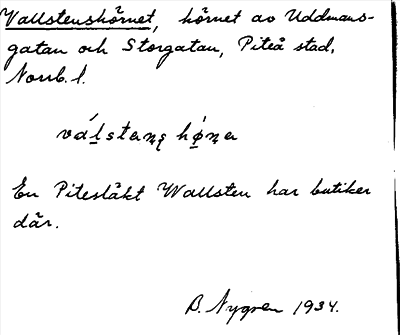 Wallstenshörnet, hörnet av Uddmans-
gatan och Storgatan, Piteå stad,
Norrb. l.
En Pitesläkt Wallsten har butiker
där.
B. Nygren 1934.